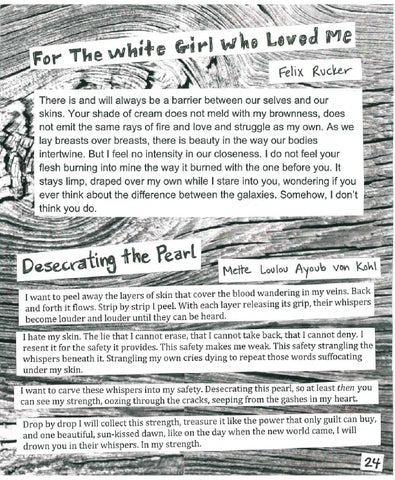 For The White Girl Who Loved Me
Felix Rucker
There is and will always be a barrier between our selves and our
skins. Your shade of cream does not meld with my brownness, does
not emit the same rays of fire and love and struggle as my own. As we
lay breasts over breasts, there is beauty in the way our bodies
intertwine. But I feel no intensity in our closeness. I do not feel your
flesh burning into mine the way it burned with the one before you. It
stays limp, draped over my own while I stare into you, wondering if you
ever think about the difference between the galaxies. Somehow, I don't
think you do.
Desecrating the Pearl
Mette Loulou Ayoub von Kohl
I want to peel away the layers of skin that cover the blood wandering in my veins. Back
and forth it flows. Strip by strip I peel. With each layer releasing its grip, their whispers
become louder and louder until they can be heard.
I hate my skin. The lie that I cannot erase, that I cannot take back, that I cannot deny. I
resent it for the safety it provides. This safety makes me weak. This safety strangling the
whispers beneath it. Strangling my own cries dying to repeat those words suffocating
under my skin.
I want to carve these whispers into my safety. Desecrating this pearl, so at least then you
can see my strength, oozing through the cracks, seeping from the gashes in my heart.
Drop by drop I will collect this strength, treasure it like the power that only guilt can buy,
and one beautiful, sun-kissed dawn, like on the day when the new world came, I will
drown you in their whispers. In my strength.
24